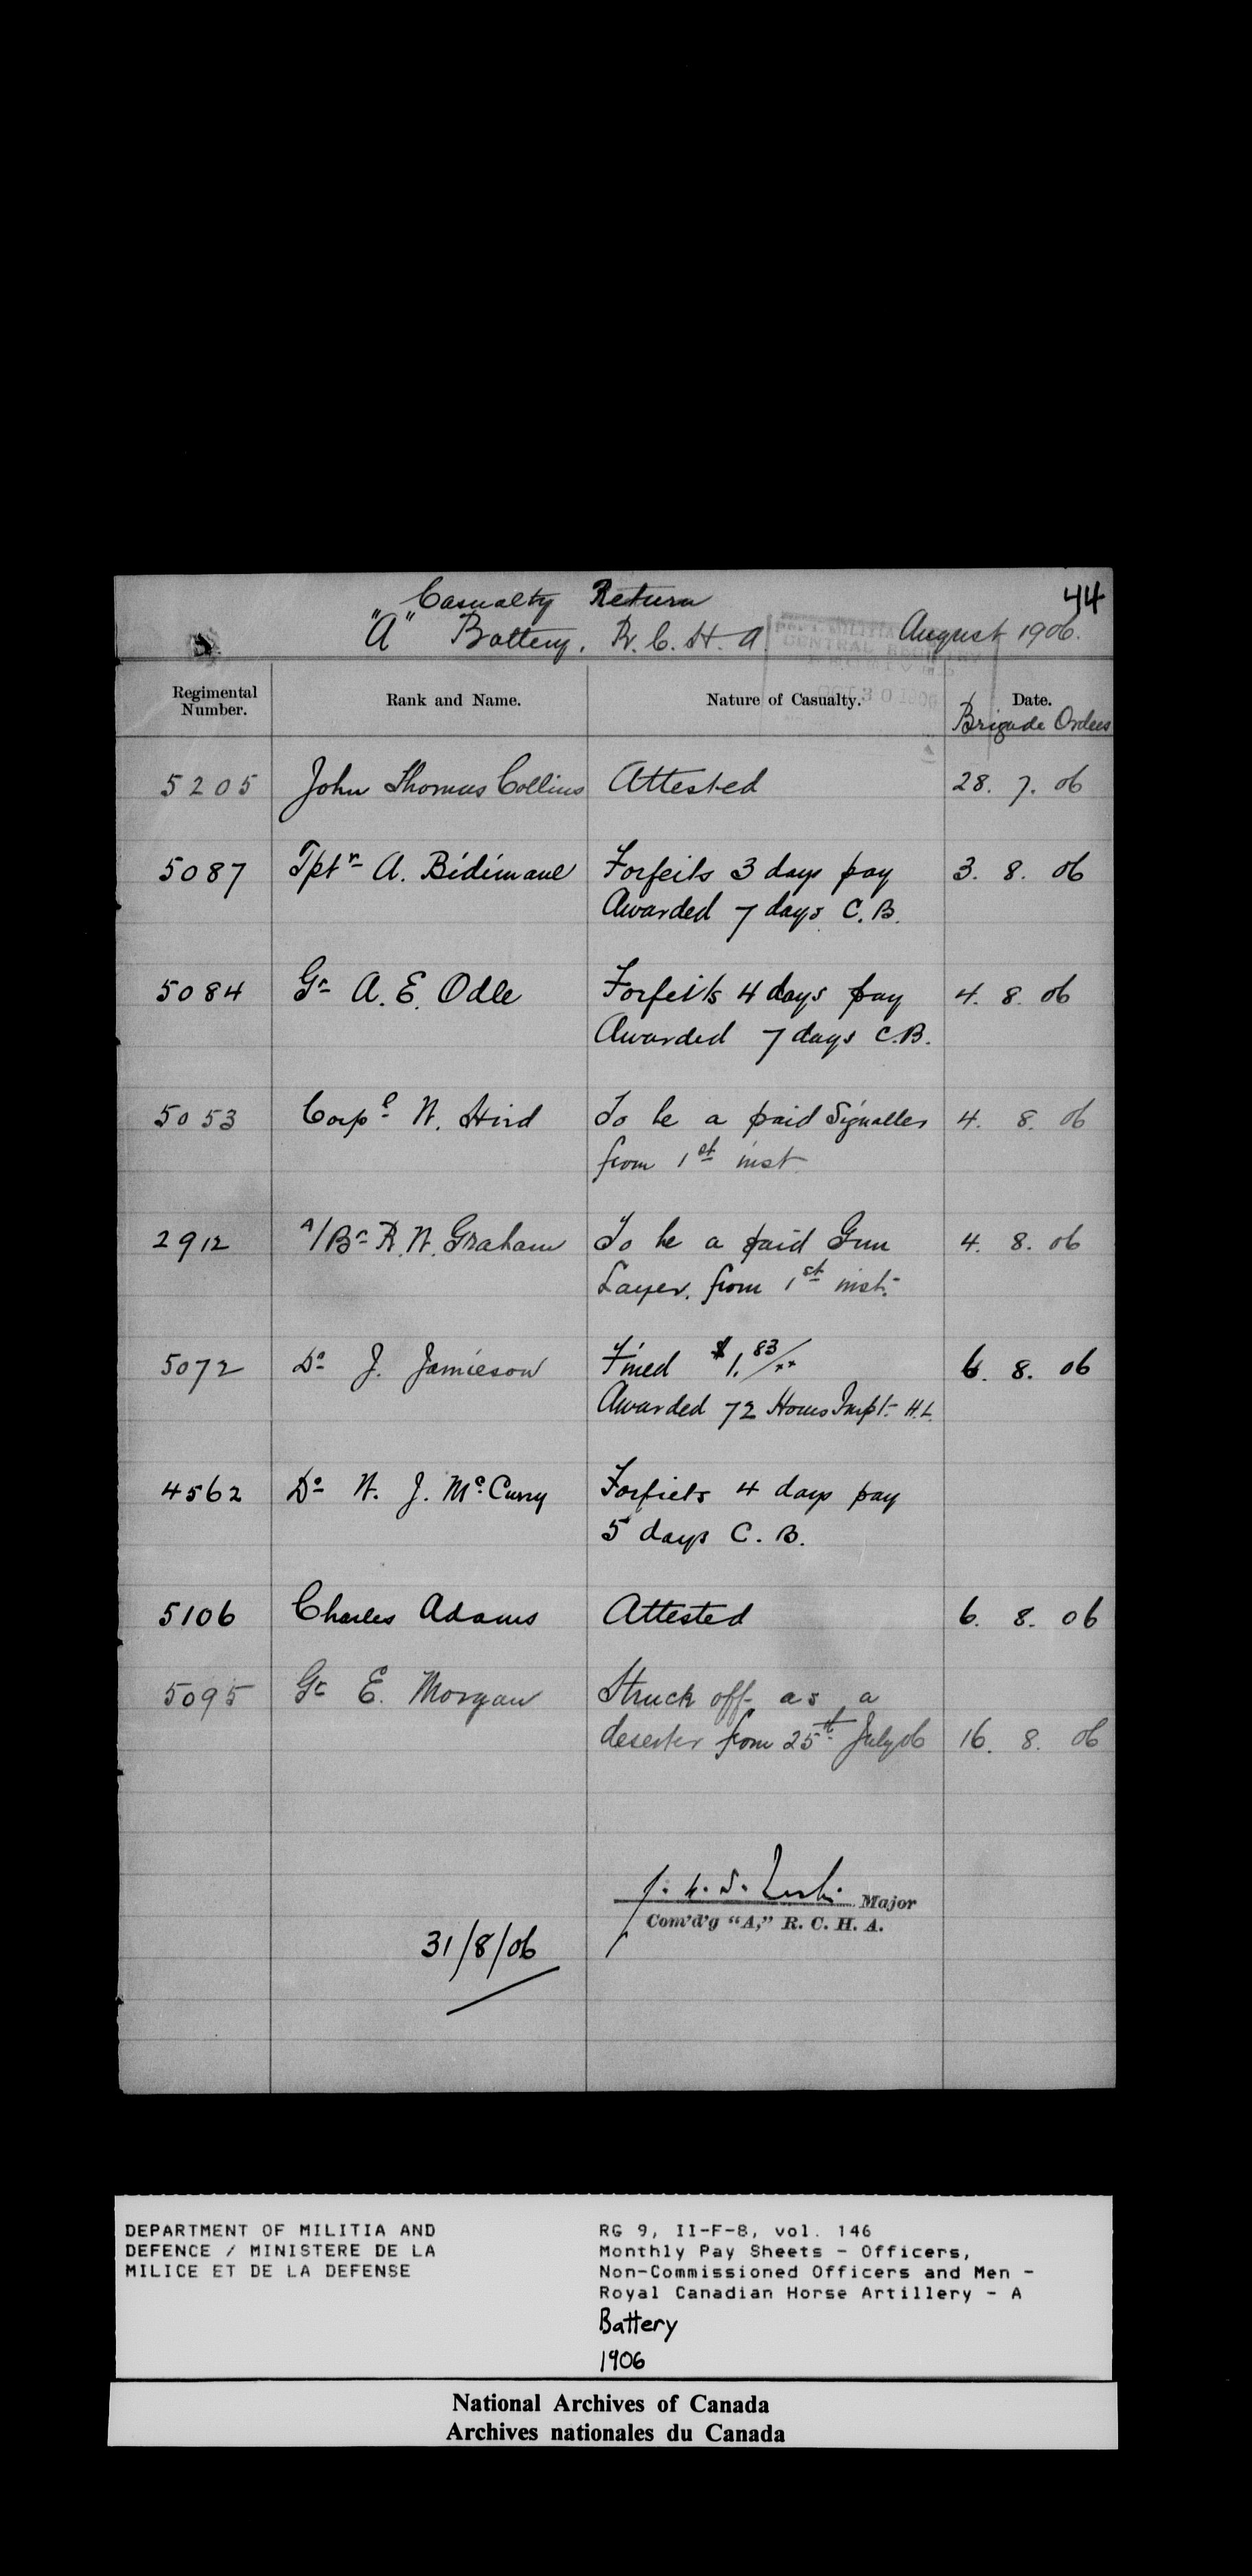 44
Casualty Return
"A" Battery. R. C. H. A. August 1906.
Regimental Number. Rank and Name. Nature of Casualty. Date.
Brigade Orders
5205 John Thomas Collins Attested 28. 7. 06
5087 Tptr A. Forfeits 3 days pay 3. 8. 06
Awarded 7 days C. B.
5084 Gr A. E. Odle Forfeits 4 days pay 4. 8. 06
Awarded 7 days C. B.
5053 Corpl W. Hird To be a paid Signaller 4. 8. 06
from 1st inst.
2912 A/Br R. W. Graham To be a paid Gun 4. 8. 06
Layer. from 1st inst.
5072 Dr J. Jamieson Fined $1.83/xx 6. 8. 06
Awarded 72 Hours Impt. H.L.
4562 Dr W. J. McCurry Forfiets 4 days pay
5 days C. B.
5106 Charles Adams Attested 6. 8. 06
5095 Gr E. Morgan Struck off as a
deserter from 25th July 06 16. 8. 06
Major
Com'd'g "A," R. C. H. A.
31/8/06
DEPARTMENT OF MILITIA AND
DEFENCE / MINISTERE DE LA
MILICE ET DE LA DEFENSE
RG 9, II-F-8, vol. 146
Monthly Pay Sheets - Officers,
Non-Commissioned Officers and Men -
Royal Canadian Horse Artillery - A
Battery
1906
National Archives of Canada
Archives nationales du Canada